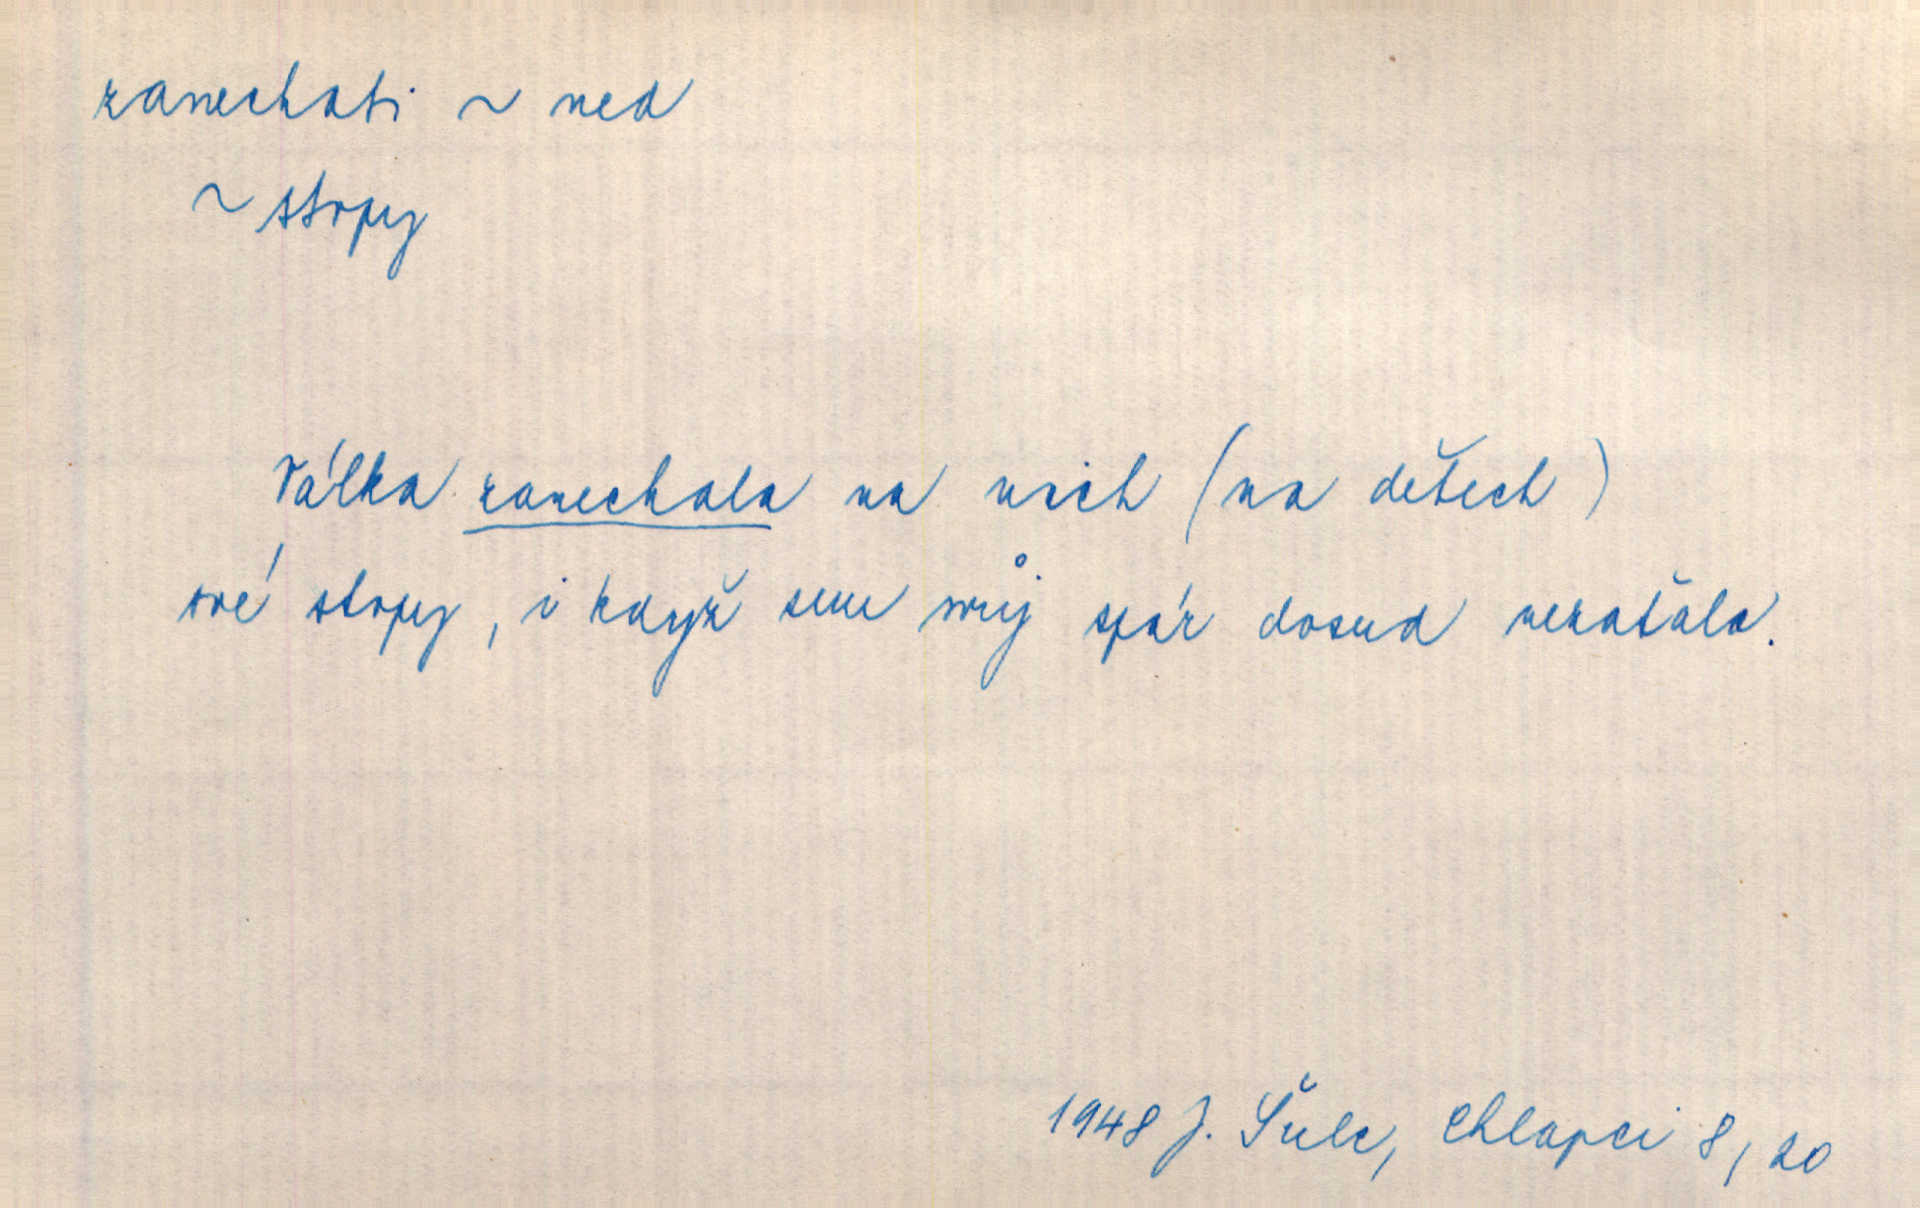 zanechati ~ ned
~ stopy
Válka zanechala na nich (na dětech)
své stopy, i když sem svůj spár dosud nezaťala.
1948 J. Šulc, Chlapci 8, 20